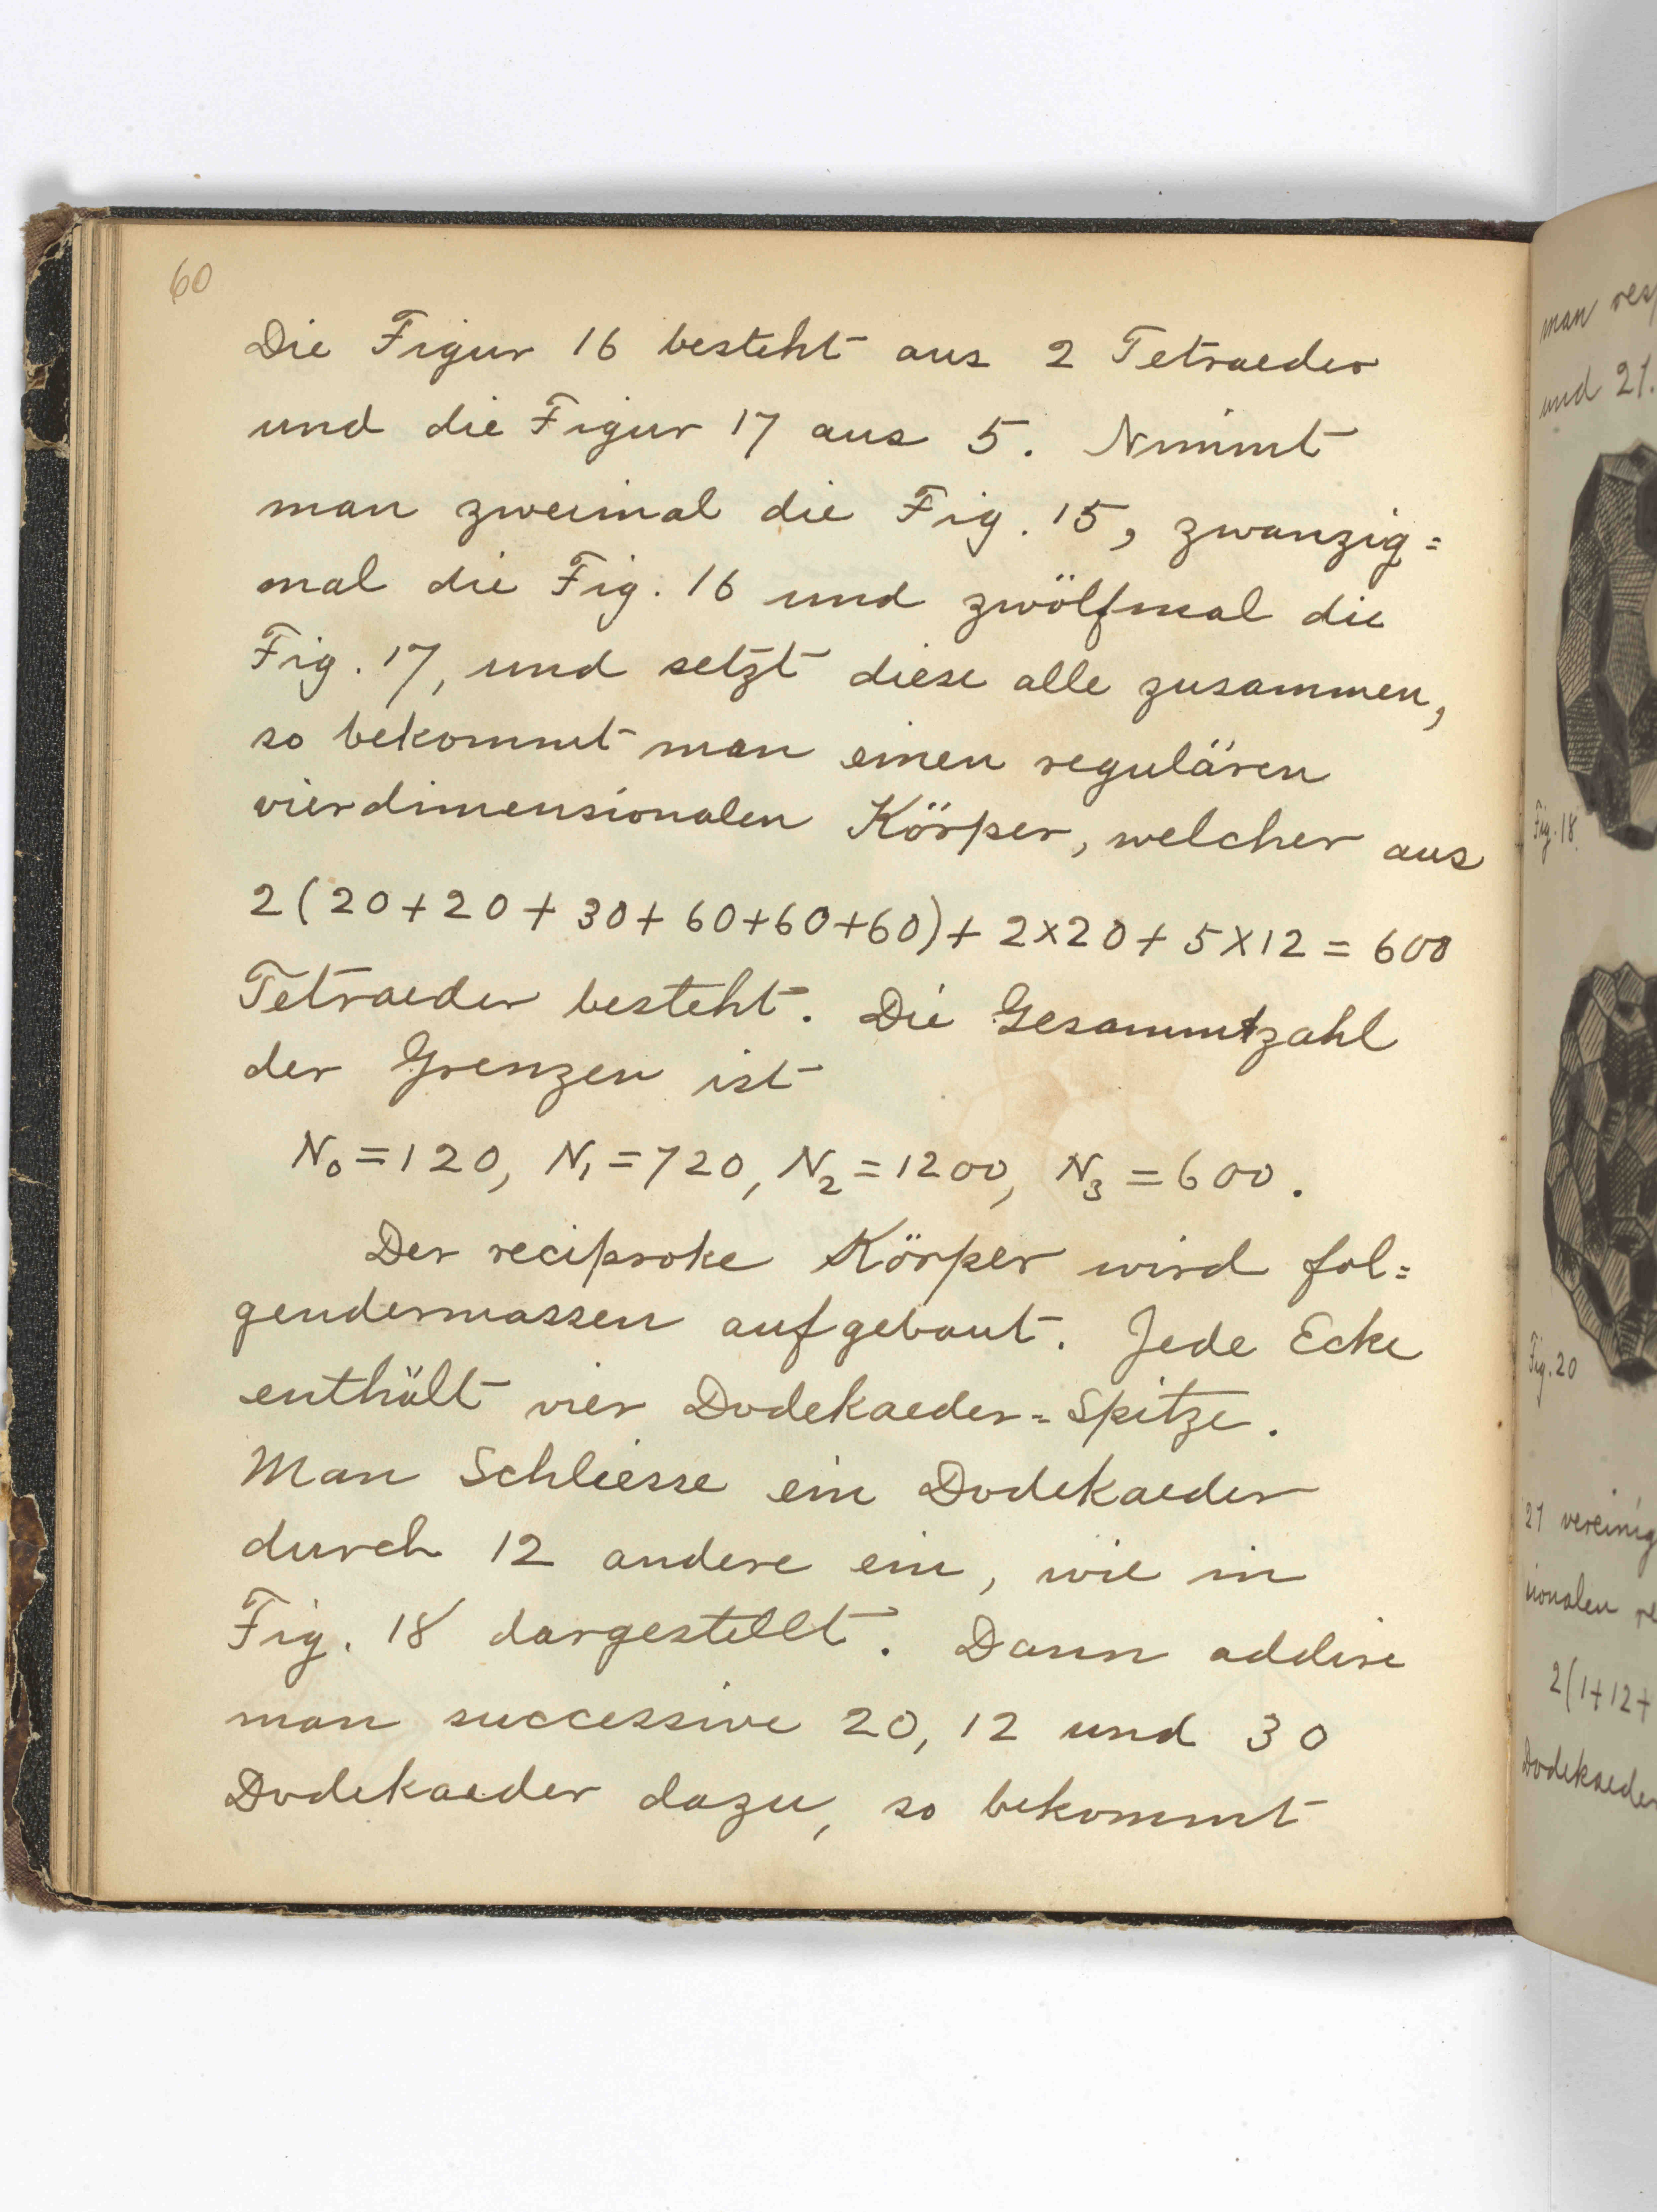 60
Die Figur 16 besteht aus 2 Tetraeder
und die Figur 17 aus 5. Nimmt
man zweimal die Fig. 15, zwanzig=
mal die Fig. 16 und zwölfmal die
Fig. 17, und setzt diese alle zusammen,
so bekommt man einen regulären
vierdimensionalen Körper, welcher aus
2(20+20+30+60+60+60)+2×20+5×12=600
Tetraeder besteht. Die Gesammtzahl
der Grenzen ist
N₀=120, N₁=720, N₂=1200, N₃=600.
Der reciproke Körper wird fol=
gendermassen aufgebaut. Jede Ecke
enthält vier Dodekaeder=Spitze.
Man Schliesse ein Dodekaeder
durch 12 andere ein, wie in
Fig. 18 dargestellt. Dann addire
man successive 20, 12 und 30
Dodekaeder dazu, so bekommt
man
und 21.
Fig. 18.
Fig. 20
21
2(1+12+